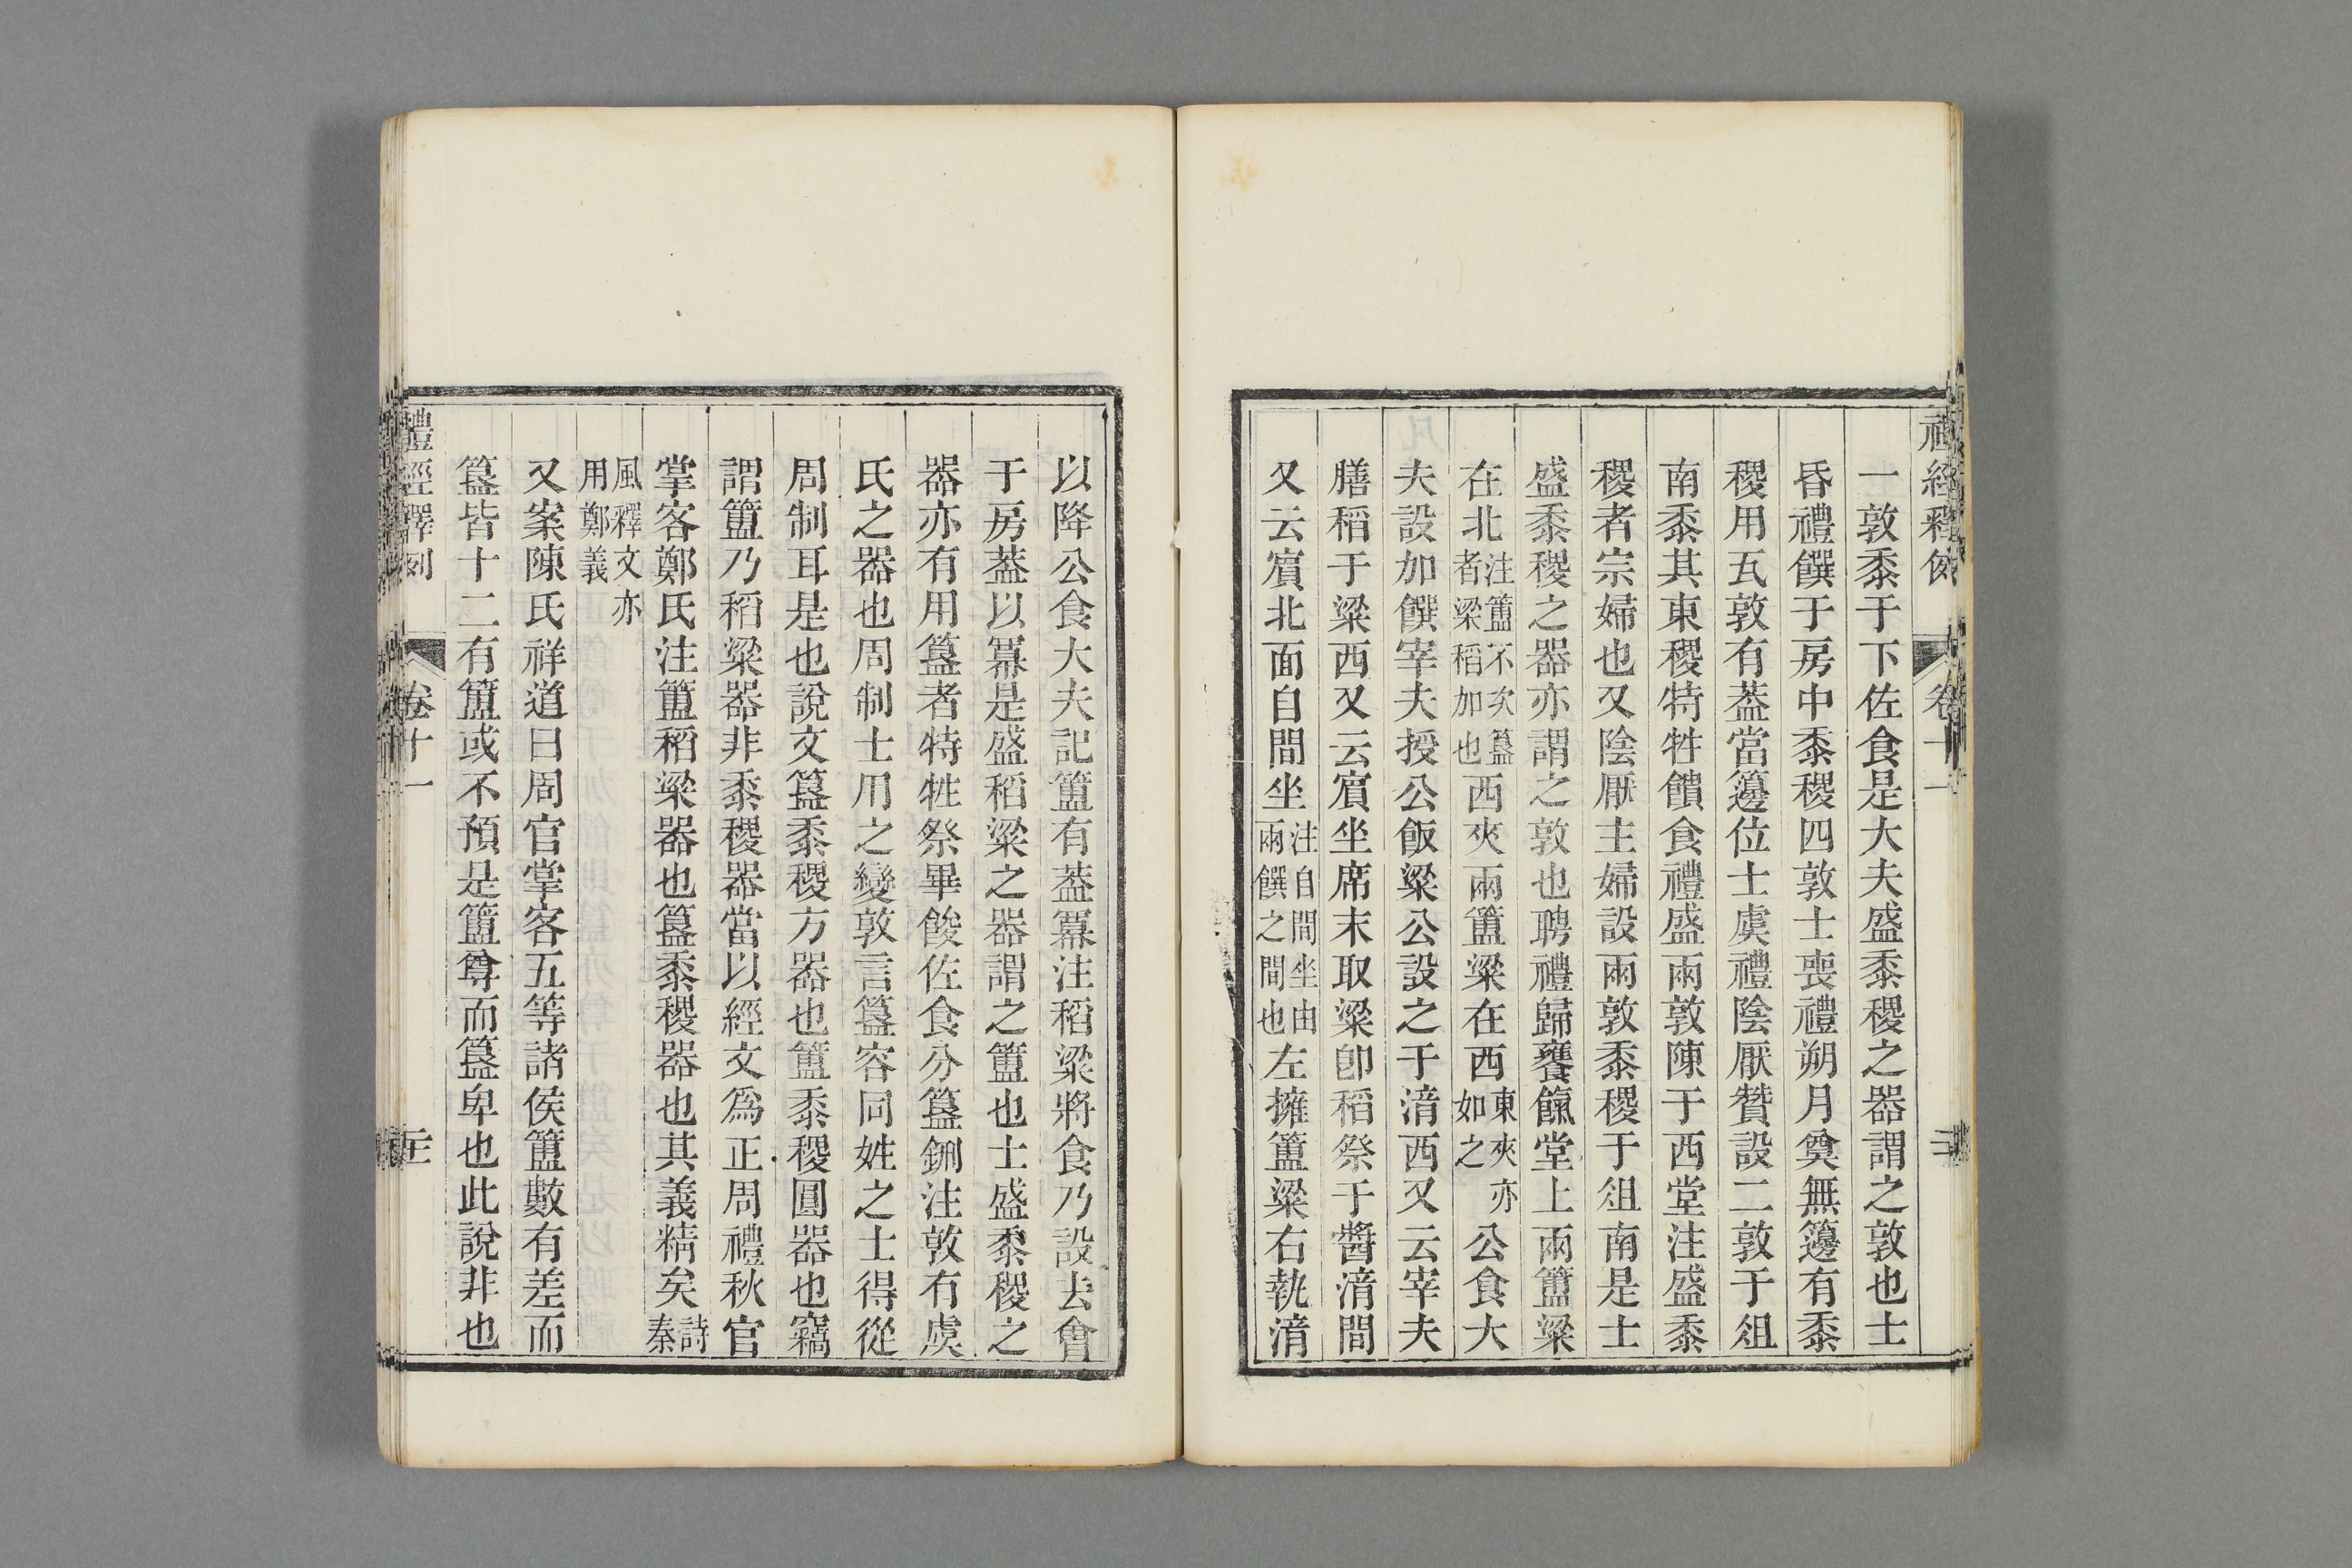 一敦黍于下佐食是大夫盛黍稷之器謂之敦也士
昏禮饌于房中黍稷四敦士喪禮朔月奠無籩有黍
稷用瓦敦有蓋當籩位士虞禮陰厭贊設二敦于俎
南黍其東稷特牲饋食禮盛兩敦陳于西堂注盛黍
稷者宗婦也又陰厭主婦設兩敦黍稷于俎南是士
盛黍稷之器亦謂之敦也聘禮歸饔餼堂上兩簠粱
在北注簠不次簋者粱稻加也西夾兩簠粱在西東夾亦如之公食大
夫設加饌宰夫授公飯粱公設之于湇西又云宰夫
膳稻于粱西又云賔坐席末取粱卽稻祭于醬湇間
又云賔北面自間坐注自間坐由兩饌之間也左擁簠粱右執湇
以降公食大夫記簠有蓋冪注稻粱將食乃設去會
于房蓋以冪是盛稻粱之器謂之簠也士盛黍稷之
器亦有用簋者特牲祭畢餕佐食分簋鉶注敦有虞
氏之器也周制士用之變敦言簋容同姓之士得從
周制耳是也說文簋黍稷方器也簠黍稷圓器也竊
謂簠乃稻粱器非黍稷器當以經文爲正周禮秋官
掌客鄭氏注簠稻粱器也簋黍稷器也其義精矣詩秦
風釋文亦用鄭義
又案陳氏祥道曰周官掌客五等諸侯簠數有差而
簋皆十二有簠或不預是簠尊而簋卑也此說非也
禮經釋例
卷十一